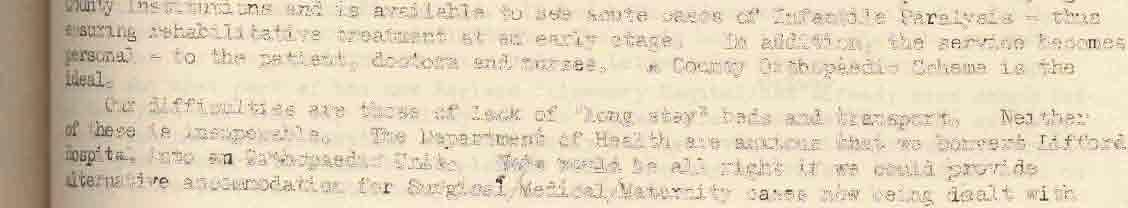 County Institutions and is available to see acute cases of Infantile Paralysis - thus
ensuring rehabilitative treatment at an early stage. In addition, the service becomes
personal - to the patient, doctors and nurses. A County Orthopaedic Scheme is the
ideal.
Our difficulties are those of lack of "long stay" beds and transport. Neither
of these is insuperable. The Department of Health are anxious that we convert Lifford
Hospital into an Orthopaedic Unit. would be all right if we could provide
alternative accommodation for Surgical/Medical/Maternity cases now being dealt with